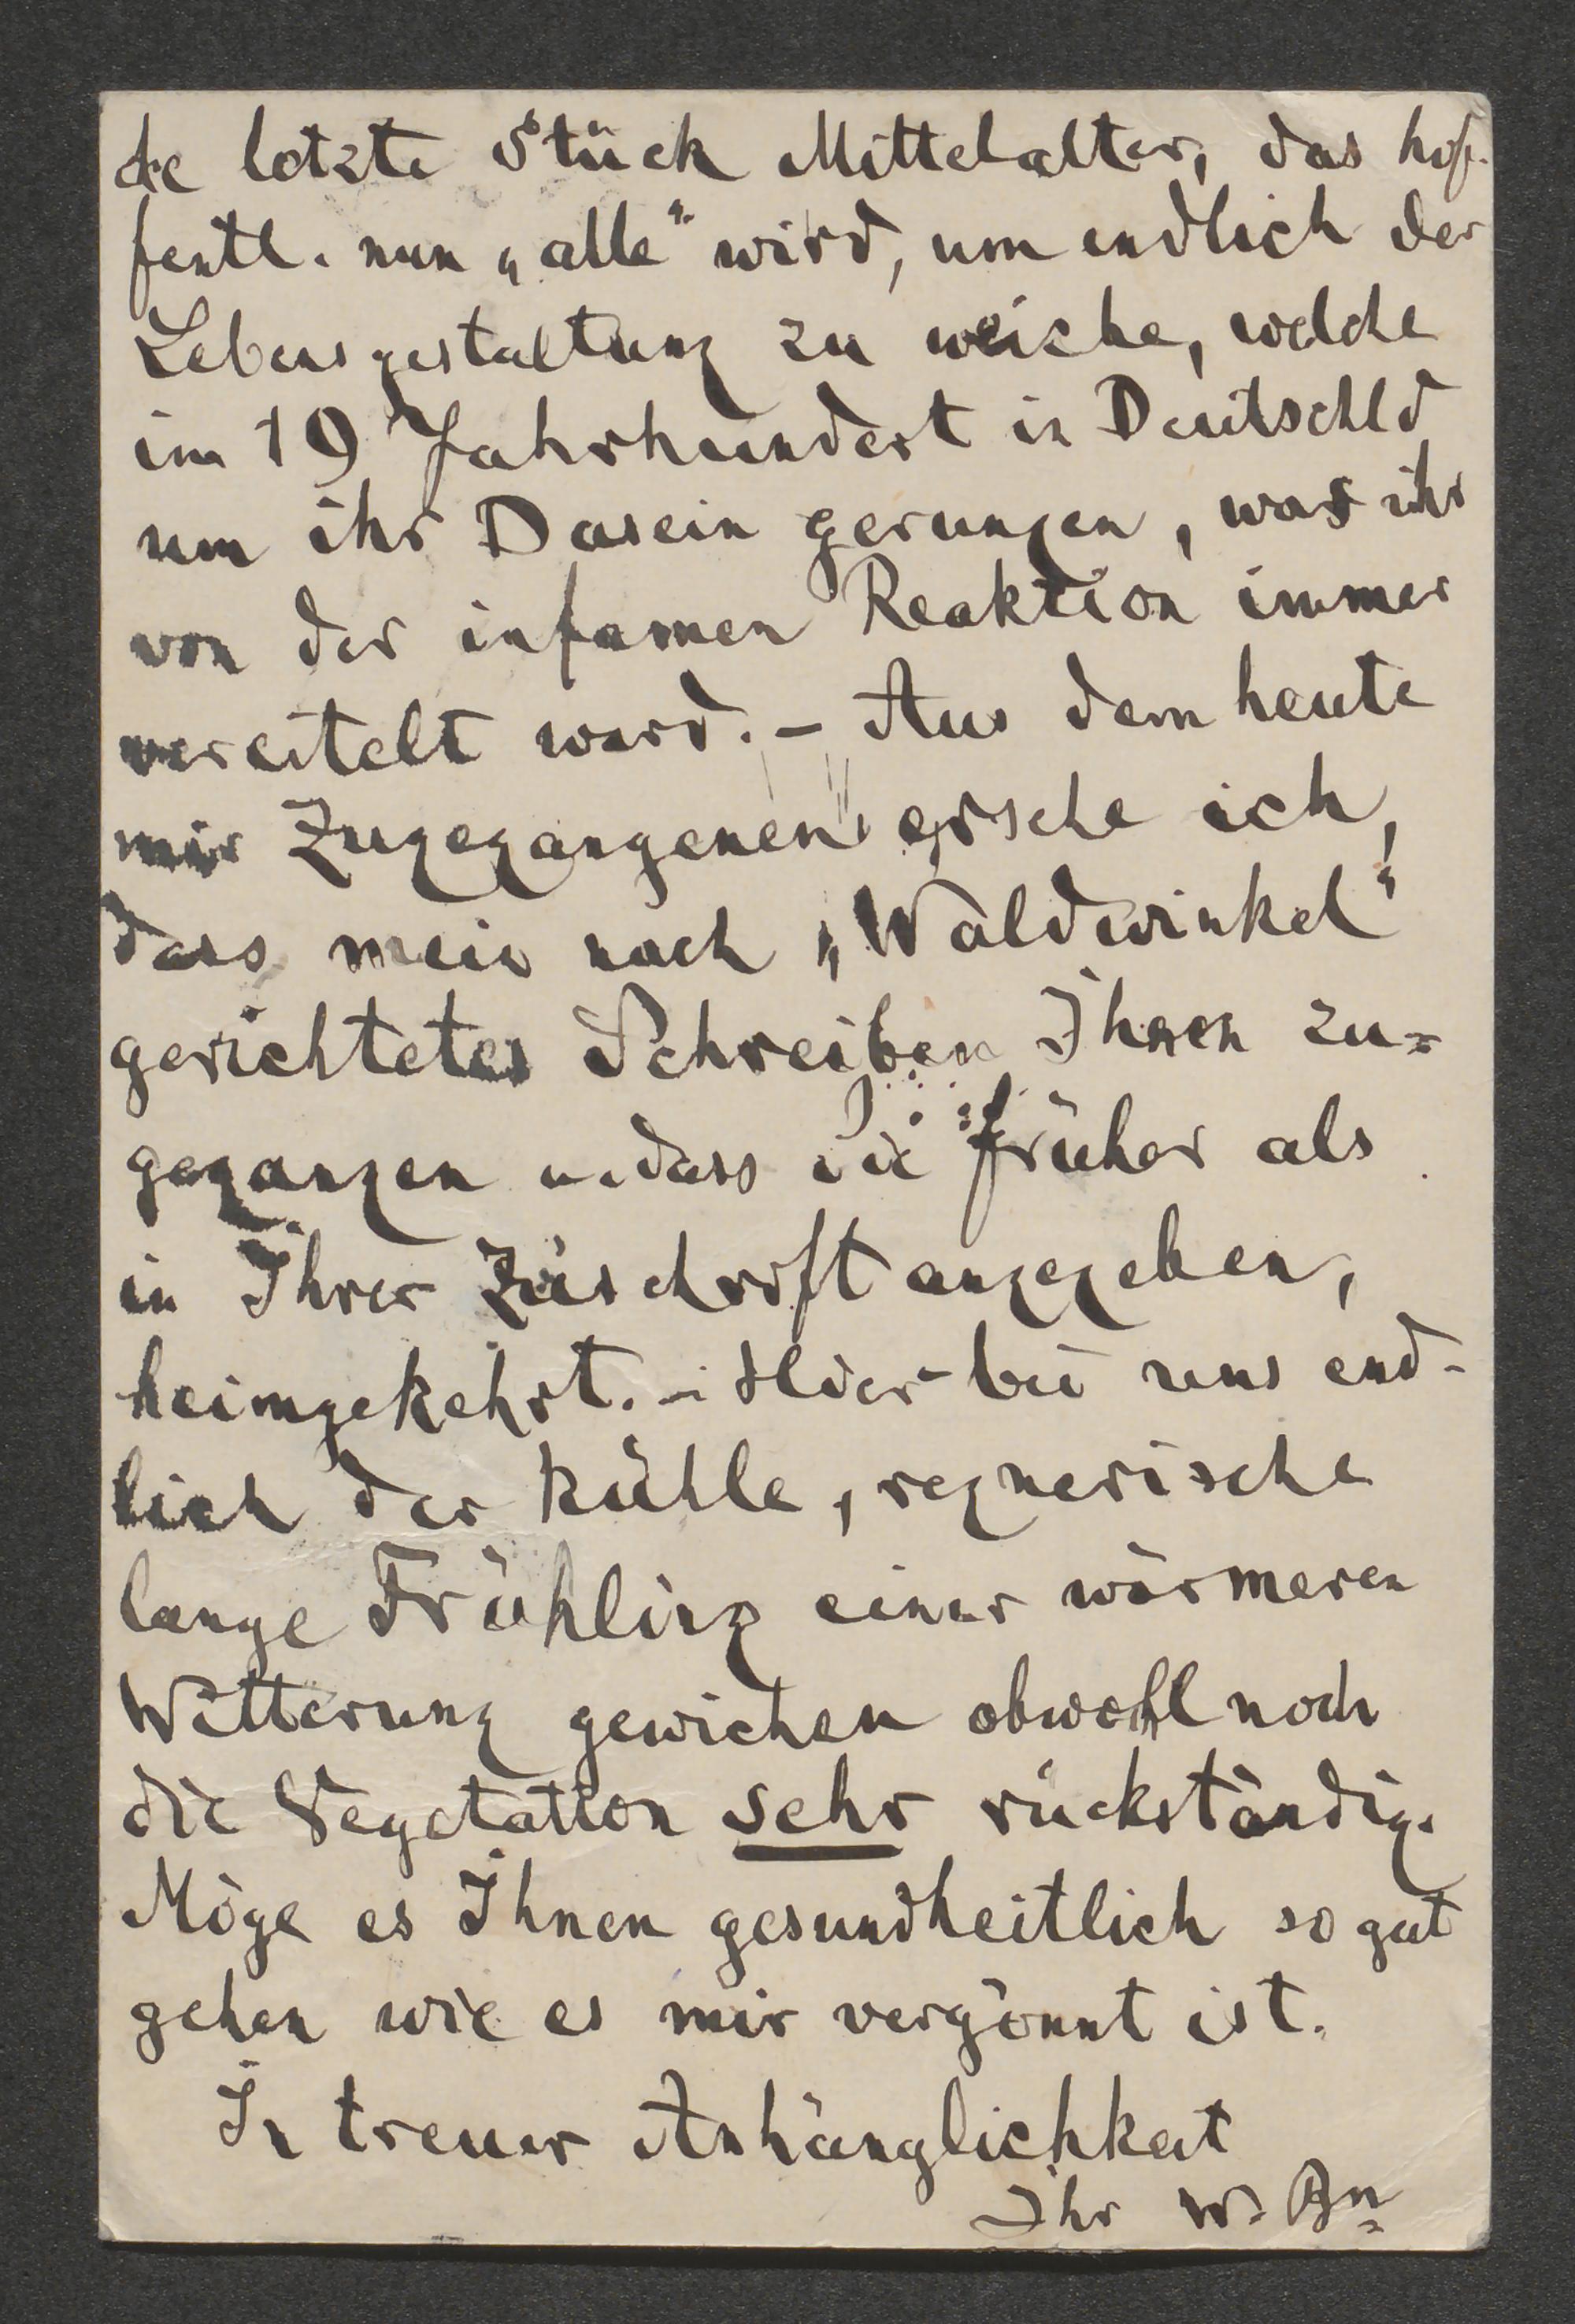 de letzte Stück Mittelalter, das hof-
fentl. nun „alle“ wird, um endlich der
Lebensgestaltung zu weiche, welche
im 19 Jahrhundert in Deutschld
um ihr Dasein gerungen, was ihr
von der infamen Reaktion immer
vereitelt ward. – Aus dem heute
mir Zugegangenen ersehe ich,
dass mein nach „Waldwinkel“
gerichtetes Schreiben Ihnen zu=
gegangen u. dass Sie früher als
in Ihrer Zuschrift angegeben,
heimgekehrt. – Hier bei uns end-
lich der kühle, regnerische
lange Frühling einer wärmeren
Witterung gewichen obwohl noch
die Vegetation sehr rückständig.
Möge es Ihnen gesundheitlich so gut
gehen wie es mir vergönnt ist.
In treuer Anhänglichkeit
Ihr W. Bn